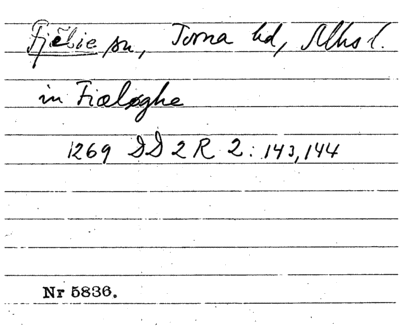 Fjelie sn, Torna hd, Mlhs l.
in Fiæløghe
1269 DD 2 R 2: 143, 144
Nr 5836.